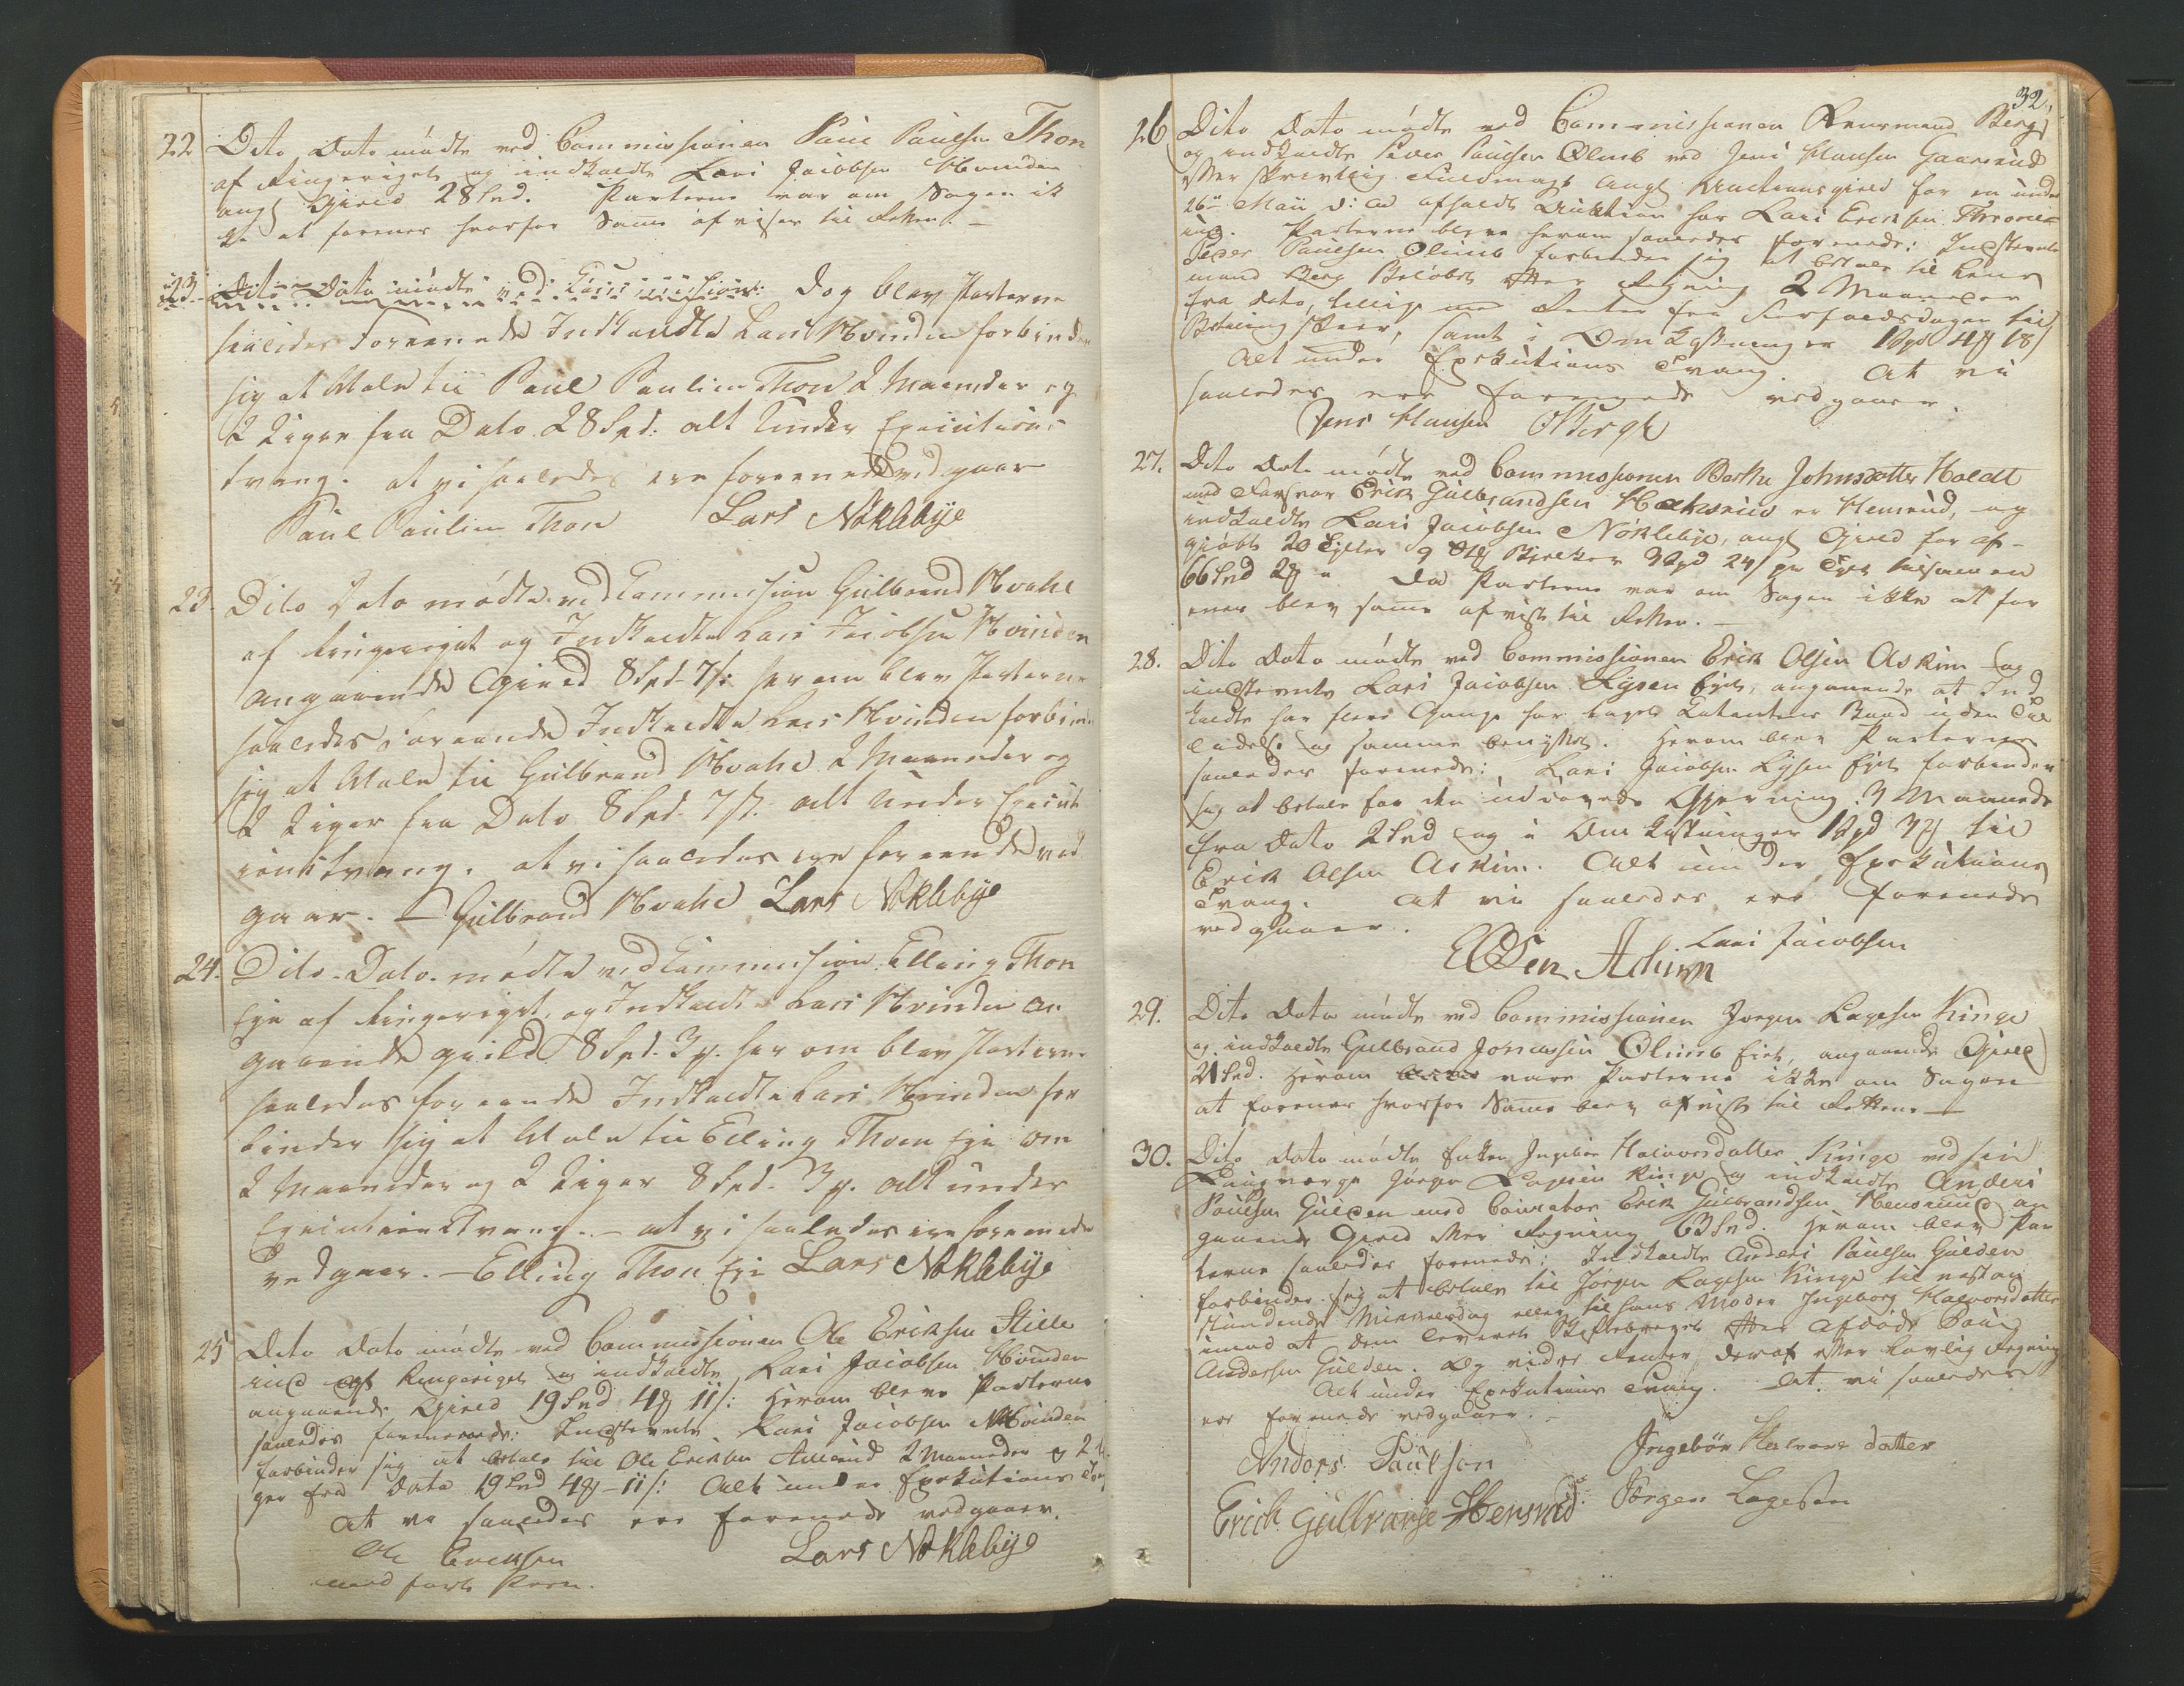 22 Dito Dato mödte ved Commissionen Paul Paulsen Thon
af Ringeriget og indkaldte Lars Jacobsen Hvinden
angl Gjield 28 Spd. Parterne var om Sagen ik
ke at forenes hvorfor Same afvises til Retten. –
23 Dito Dato mödte ved Commission: Dog blev Parterne
saaledes Foreenede Indkaldte Lars Hvinden forbinder
sig at betale til Paul Paulsen Thon 2 Maaneder og
2 Uger fra Dato 28 Spd: alt under Execution-
tvang. at vi saaledes ere foreenede vedgaar
Paul Paulsen Thon Lars Nöklebÿe
23. Dito Dato mödte ved Commission Gulbrand Hvahl
af Ringeriget og Indkaldte Lars Jacobsen Hvinden
angaaende Gjield 8 Spd 7 /: her om blev Parterne
saaledes foreende Indkaldte Lars Hvinden forbinder
sig at betale til Gulbrand Hvahl 2 Maaneder og
2 Uger fra Dato 8 Spd. 7 /. alt under Execut
ionstvang. at vi saaledes ere foreende ved
gaar. – Gulbrand Hvahl Lars Nöklebÿe
24. Dito Dato mödte ved Commission Elling Thon
Eje af Ringeriget, og Indkaldte Lars Hvinden an
gaaende gjield 8 Spd. 3 /. her om blev Parterne
saaledes foreende Indkaldte Lars Hvinden for
binder sig at betale til Elling Thon Eje om
2 Maaneder og 2 Uger 8 Spd. 3 /. alt under
Executionstvang. – at vi saaledes ere foreenede
vedgaar. – Elling Thon Eje Lars Nöklebÿe
25 Dito Dato mödte ved Commissionen Ole Eriksen Stille
rud af Ringeriget og indkaldte Lars Jacobsen Hvinden
angaaende Gjield 19 Spd 4 11 /: Herom bleve Parterne
saaledes forenede: Indstevnte Lars Jacobsen Hvinden
forbinder sig at betale til Ole Eriksen 2 Maaneder og 2 U
ger fra Dato 19 Spd 4 – 11 /: Alt under Exekutions Tvang
At vi saaledes ere forenede vedgaaer.
Ole Ericksen Lars Nöklebÿe
med förte Pen.
32.
26 Dito Dato mödte ved Commissionen Lensmand Berg
og indkaldte Peder Paulsen Ölimb ved Jens Hansen Gaarerud
efter skrivtlig Fuldmagt angl Auctionsgjield for en under
26de Maii d: A afholdt Auktion hos Lars Eriksen
Parterne bleve herom saaledes forenede: Indstevnte
Peder Paulsen Ölimb forbinder sig at betale til Lens
mand Berg Belöbet efter Regning 2 Maaneder
fra Dato, tillige med Renter fra Forfaldsdagen til
Betaling skeer, samt i Omkostninger 1 Spd 4 18 /
Alt under Exekutions Tvang. At vi
saaledes ere forenede vedgaaer.
Jens Hansen OBergh
27. Dito Dato mödte ved Commissionen Berthe Johnsdatter Holdt
med Forsvar Erick Gulbrandsen Hensrud, og
indkaldte Lars Jacobsen Nöklebÿe, angl Gjield for af-
gjöbte 20 Tylter 9 Bjelker 3 Spd 24 / pr Tylt tilsammen
66 Spd 2 . Da Parterne var om Sagen ikke at for
enes blev same afvist til Retten. –
28. Dito Dato mödte ved Commissionen Erick Olsen Askim og
indstevnte Lars Jacobsen Lÿsen Eje, angaaende at Ind
kaldte har flere Gange har taget Citantens Baad uden Til
ladelse og samme benyttet. Herom blev Parterne
saaledes forenede: Lars Jacobsen Lÿsen Eje forbinder
sig at betale for den udövede Gjerning 3 Maaneder
fra Dato 2 Spd og i Omkostninger 1 Spd 3 til
Erick Olsen Askim. Alt under Exekutions
Tvang. At vi saaledes ere forenede
vedgaaer. Lars Jacobsen
EOlsen Aschim
29. Dito Dato mödte ved Commissionen Jörgen Lagesen Kinge
og indkaldte Gulbrand Jonassen Ölimb Eje, angaaende Gjield
21 Spd. Herom vare Parterne ikke om Sagen
at forenes hvorfor Same blev afvist til Retten –
30. Dito Dato mödte Enken Ingebör Halvorsdatter Kinge ved sin
Laugværge Jörgen Lagesen Kinge og indkaldte Anders
Paulsen Gulden med Courator Erik Gulbrandsen Hensrud an
gaaende Gjeld efter Regning 63 Spd. Herom blev Par
terne saaledes forenede: Indkaldte Anders Paulsen Gulden
forbinder sig at betale til Jörgen Lagesen Kinge til nest an
stundende Mikkelsdag eller til hans Moder Ingeborg Halvorsdatter
imod at dem leveres Skiftebrevet efter Afdöde Paul
Andersen Gulden. Og videre Renter deraf efter lovlig Regning
Alt under Exekutions Tvang. At vi saaledes
ere forenede vedgaaer. –
Anders Paulson Ingebör Halvors datter
Erick Gulbranse Hensrud Jörgen Lagesen